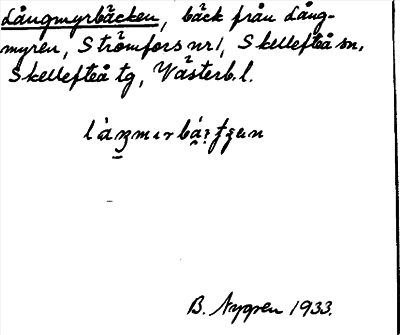 Långmyrbäcken, bäck från Lång-
myren, Strömfors nr 1, Skellefteå sn,
Skellefteå tg, Västerb. l.
B. Nygren 1933.